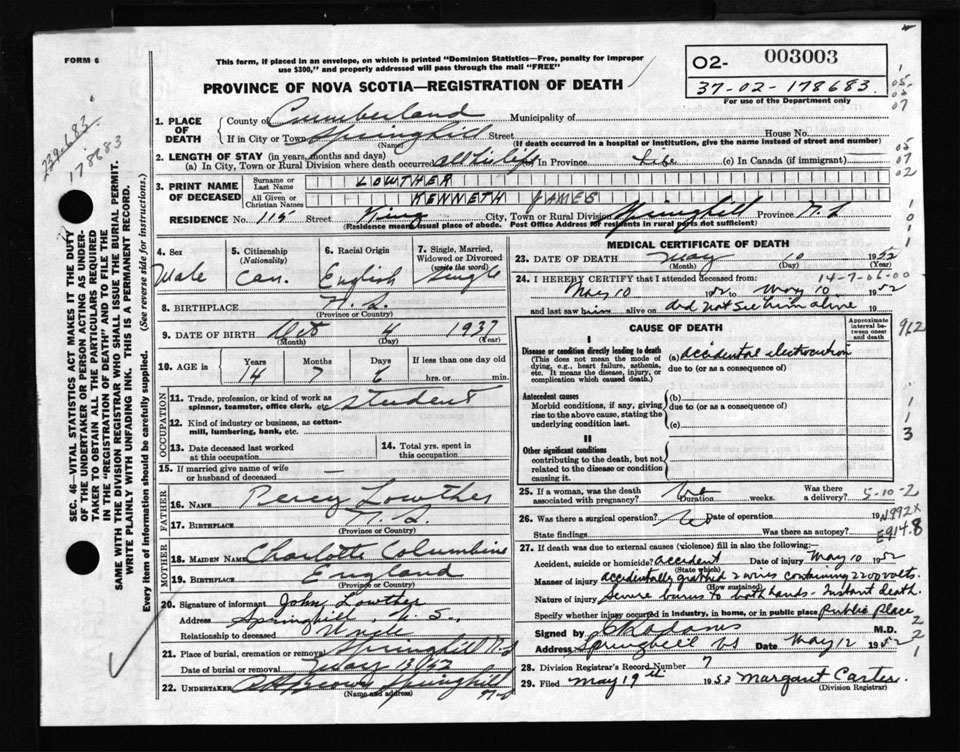 FORM 6
This form, if placed in an envelope, on which is printed "Dominion Statistics—Free, penalty for improper
use $300," and properly addressed will pass through the mail "FREE"
O2- 003003
37-02-178683
For use of the Department only
PROVINCE OF NOVA SCOTIA—REGISTRATION OF DEATH
178683
SEC. 46—VITAL STATISTICS ACT MAKES IT THE DUTY
OF THE UNDERTAKER OR PERSON ACTING AS UNDER-
TAKER TO OBTAIN ALL THE PARTICULARS REQUIRED
IN THE "REGISTRATION OF DEATH" AND TO FILE THE
SAME WITH THE DIVISION REGISTRAR WHO SHALL ISSUE THE BURIAL PERMIT.
WRITE PLAINLY WITH UNFADING INK. THIS IS A PERMANENT RECORD.
Every item of information should be carefully supplied. (See reverse side for instructions.)
1. PLACE OF DEATH
County of Cumberland Municipality of
If in City or Town Springhill Street House No.
(Name) (If death occurred in a hospital or institution, give the name instead of street and number)
2. LENGTH OF STAY (in years, months and days)
(a) In City, Town or Rural Division where death occurred all his life In Province Life (c) In Canada (if immigrant)
3. PRINT NAME OF DECEASED
Surname or Last Name LOWTHER
All Given or Christian Names KENNETH JAMES
RESIDENCE No. 115 Street King City, Town or Rural Division Springhill Province N.S.
(Residence means usual place of abode. Post Office Address for residents in rural parts not sufficient)
4. Sex Male
5. Citizenship (Nationality) Can.
6. Racial Origin English
7. Single, Married, Widowed or Divorced (write the word) Single
8. BIRTHPLACE N.S.
(Province or Country)
9. DATE OF BIRTH Oct 4 1937
(Month) (Day) (Year)
10. AGE in Years 14 Months 7 Days 6 If less than one day old hrs. or min.
OCCUPATION
11. Trade, profession, or kind of work as spinner, teamster, office clerk, etc. student
12. Kind of industry or business, as cotton-mill, lumbering, bank, etc.
13. Date deceased last worked at this occupation
14. Total yrs. spent in this occupation
15. If married give name of wife or husband of deceased —
FATHER
16. NAME Percy Lowther
17. BIRTHPLACE N.S.
(Province or Country)
MOTHER
18. MAIDEN NAME Charlotte Columbine
19. BIRTHPLACE England
(Province or Country)
20. Signature of informant John Lowther
Address Springhill, N.S.
Relationship to deceased Uncle
21. Place of burial, cremation or removal Springhill N.S
Date of burial or removal May 13/52
22. UNDERTAKER Brown Springhill N.S
(Name and address)
MEDICAL CERTIFICATE OF DEATH
23. DATE OF DEATH May 10 1952
(Month) (Day) (Year)
14-7-06-00
24. I HEREBY CERTIFY that I attended deceased from:
May 10 1952 to May 10 1952
and last saw him alive on did not see him alive 19
CAUSE OF DEATH
Approximate interval between onset and death
I
Disease or condition directly leading to death
(This does not mean the mode of dying, e.g., heart failure, asthenia, etc. It means the disease, injury, or complication which caused death.)
(a) accidental electrocution
due to (or as a consequence of)
Antecedent causes
Morbid conditions, if any, giving rise to the above cause, stating the underlying condition last.
(b)
due to (or as a consequence of)
(c)
II
Other significant conditions
contributing to the death, but not related to the disease or condition causing it.
25. If a woman, was the death associated with pregnancy? Duration weeks. Was there a delivery?
5-10-2
26. Was there a surgical operation? No Date of operation 19
State findings Was there an autopsy?
N992X
E914.8
27. If death was due to external causes (violence) fill in also the following:—
Accident, suicide or homicide? accident Date of injury May 10 1952
(State which)
Manner of injury accidentally grabbed 2 wires containing 2200 volts.
(How sustained)
Nature of injury Severe burns to both hands. Instant death.
Specify whether injury occurred in industry, in home, or in public place Public place
Signed by M.D.
Address Springhill NS Date May 12 1952
28. Division Registrar's Record Number 7
29. Filed May 19th 1952 Margaret Carter
(Division Registrar)